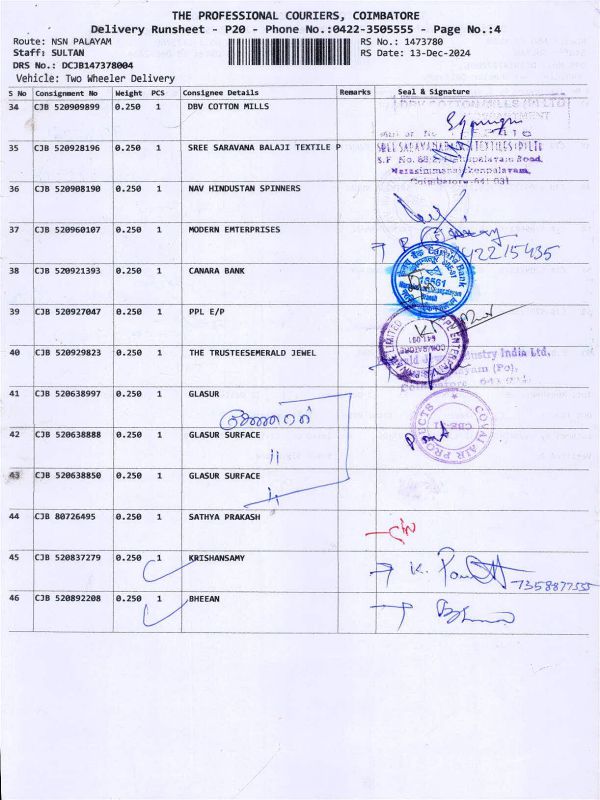 THE PROFESSIONAL COURIERS, COIMBATORE
Delivery Runsheet - P20 - Phone No.:0422-3505555 - Page No.:4
Route: NSN PALAYAM RS No.: 1473780
Staff: SULTAN RS Date: 13-Dec-2024
DRS No.: DCJB147378004
Vehicle: Two Wheeler Delivery
S No Consignment No Weight PCS Consignee Details Remarks Seal & Signature
34 CJB 520909899 0.250 1 DBV COTTON MILLS
35 CJB 520928196 0.250 1 SREE SARAVANA BALAJI TEXTILE P
Coimbatore-641 031
36 CJB 520908190 0.250 1 NAV HINDUSTAN SPINNERS
37 CJB 520960107 0.250 1 MODERN EMTERPRISES
38 CJB 520921393 0.250 1 CANARA BANK
Canara Bank
39 CJB 520927047 0.250 1 PPL E/P
40 CJB 520929823 0.250 1 THE TRUSTEESEMERALD JEWEL
Industry India Ltd,
41 CJB 520638997 0.250 1 GLASUR
42 CJB 520638888 0.250 1 GLASUR SURFACE
COVAI AIR PRODUCTS
43 CJB 520638850 0.250 1 GLASUR SURFACE
44 CJB 80726495 0.250 1 SATHYA PRAKASH
45 CJB 520837279 0.250 1 KRISHANSAMY
46 CJB 520892208 0.250 1 BHEEAN